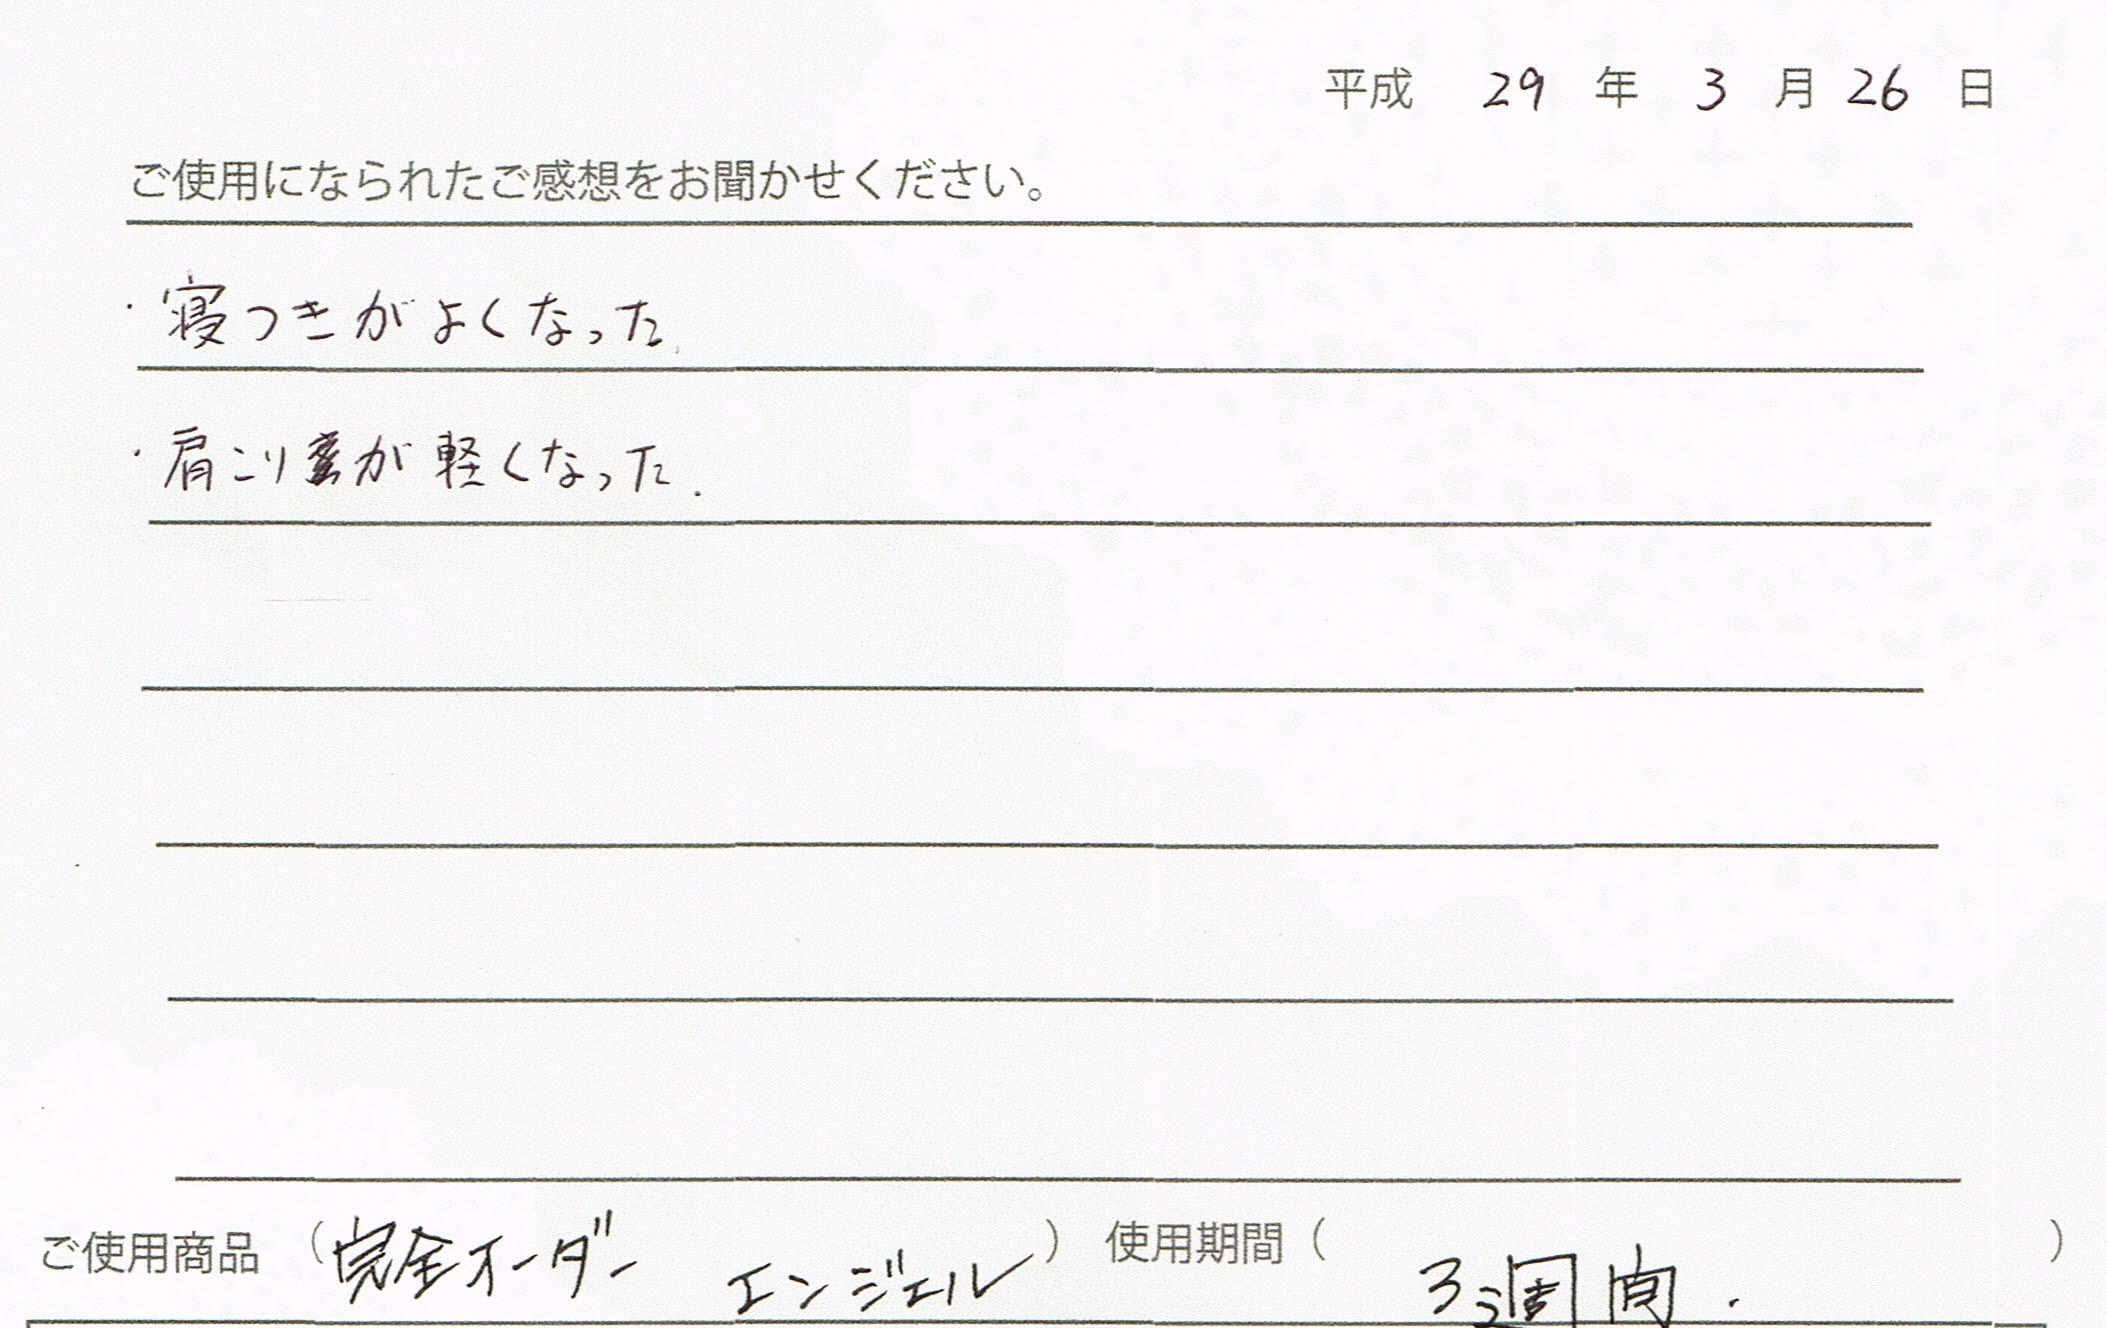 平成 29 年 3 月 26 日
ご使用になられたご感想をお聞かせください。
・寝つきがよくなった.
・肩こりが軽くなった.
ご使用商品 (完全オーダー エンジェル) 使用期間 ( 3週間. )